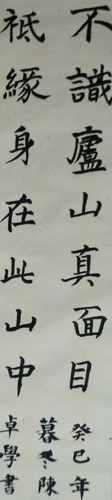 不識廬山真面目
祗緣身在此山中
癸巳年
暮冬陳
卓學書